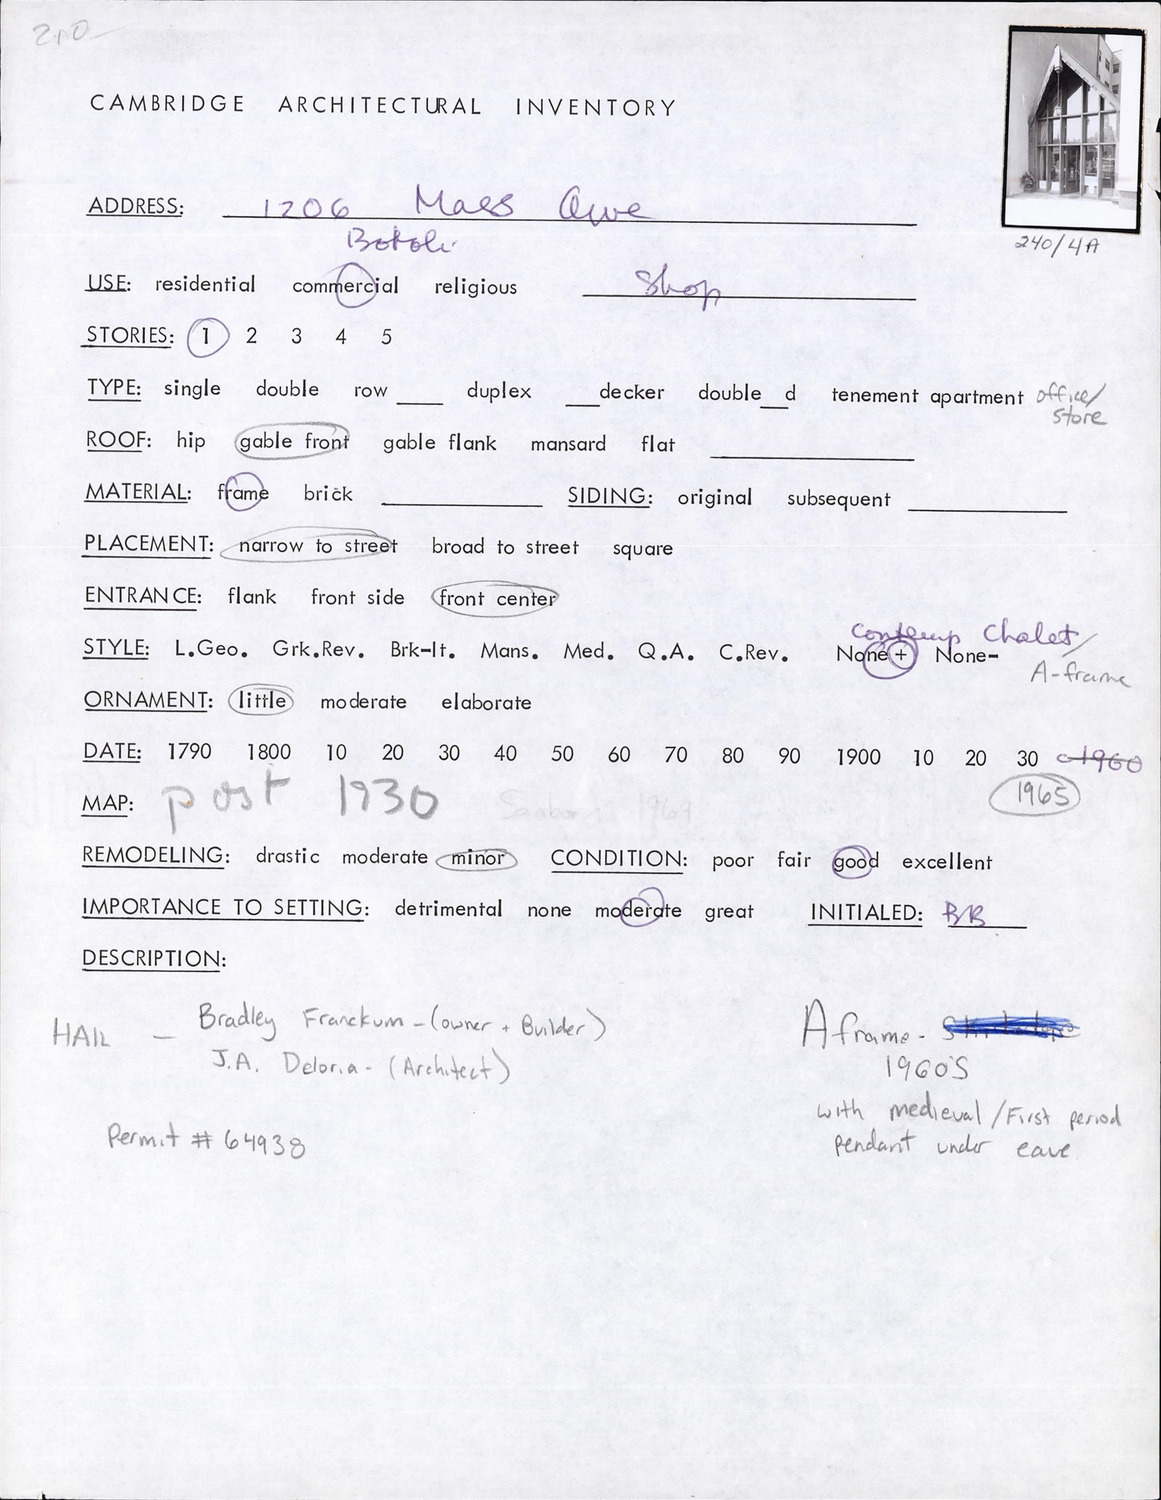 210
CAMBRIDGE ARCHITECTURAL INVENTORY
240/4A
ADDRESS: 1206 Mass Ave
USE: residential commercial religious Shop
STORIES: 1 2 3 4 5
TYPE: single double row ___ duplex ___decker double__d tenement apartment office/
store
ROOF: hip gable front gable flank mansard flat
MATERIAL: frame brick SIDING: original subsequent
PLACEMENT: narrow to street broad to street square
ENTRANCE: flank front side front center
Contemp Chalet/
STYLE: L.Geo. Grk.Rev. Brk-It. Mans. Med. Q.A. C.Rev. None+ None-
A-frame
ORNAMENT: little moderate elaborate
DATE: 1790 1800 10 20 30 40 50 60 70 80 90 1900 10 20 30 c1960
MAP: post 1930 Sanborn 1969 1965
REMODELING: drastic moderate minor CONDITION: poor fair good excellent
IMPORTANCE TO SETTING: detrimental none moderate great INITIALED: BB
DESCRIPTION:
HAIL — Bradley Franckum - (owner + Builder)
J.A. Deloria - (Architect)
Permit # 64938
A frame -
1960'S
with medieval/First period
pendant under eave